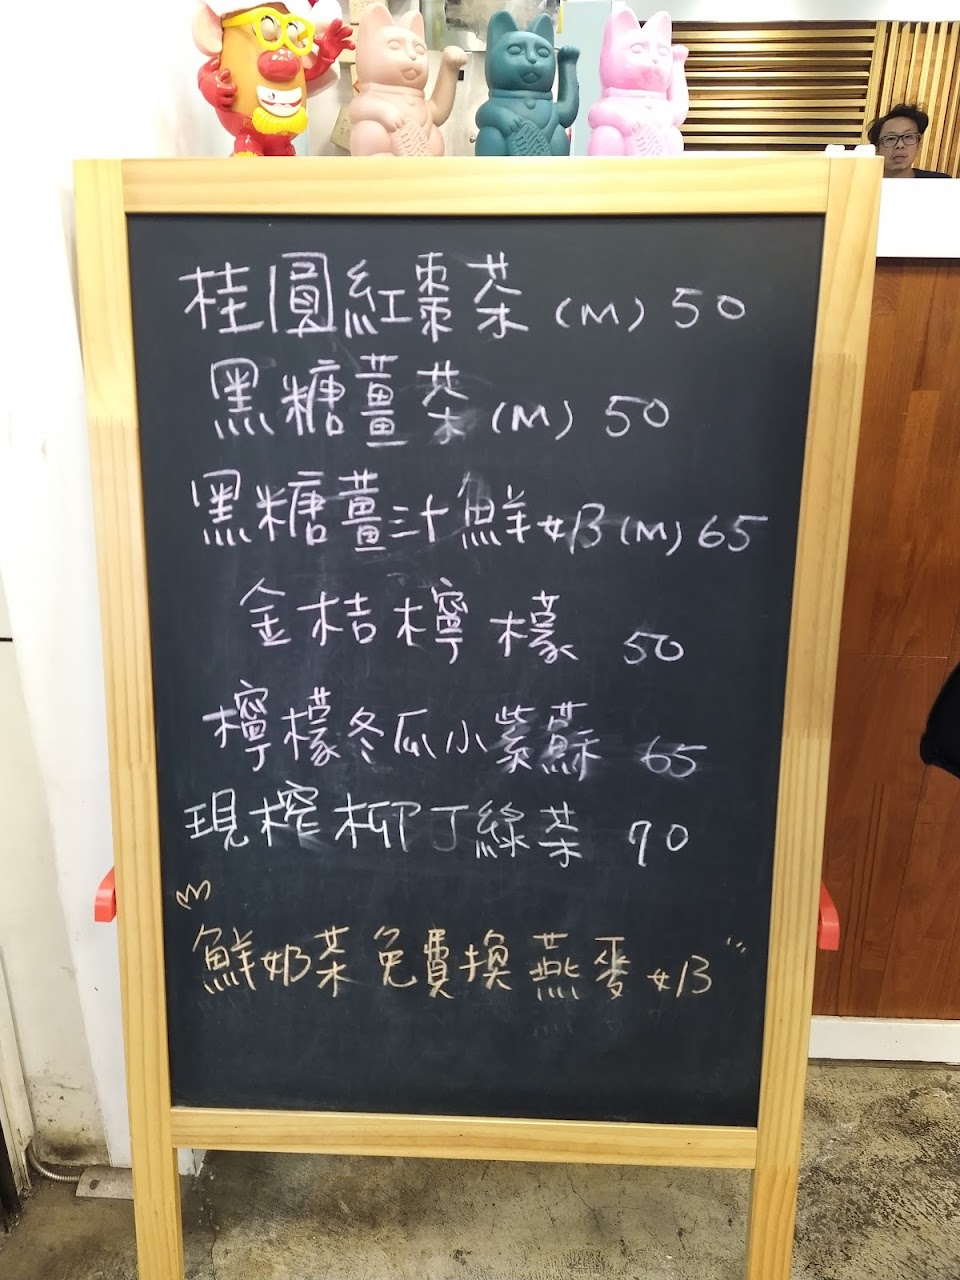 桂圓紅棗茶 (M) 50
黑糖薑茶 (M) 50
黑糖薑汁鮮奶 (M) 65
金桔檸檬 50
檸檬冬瓜小紫蘇 65
現榨柳丁綠茶 70
鮮奶茶免費換燕麥奶